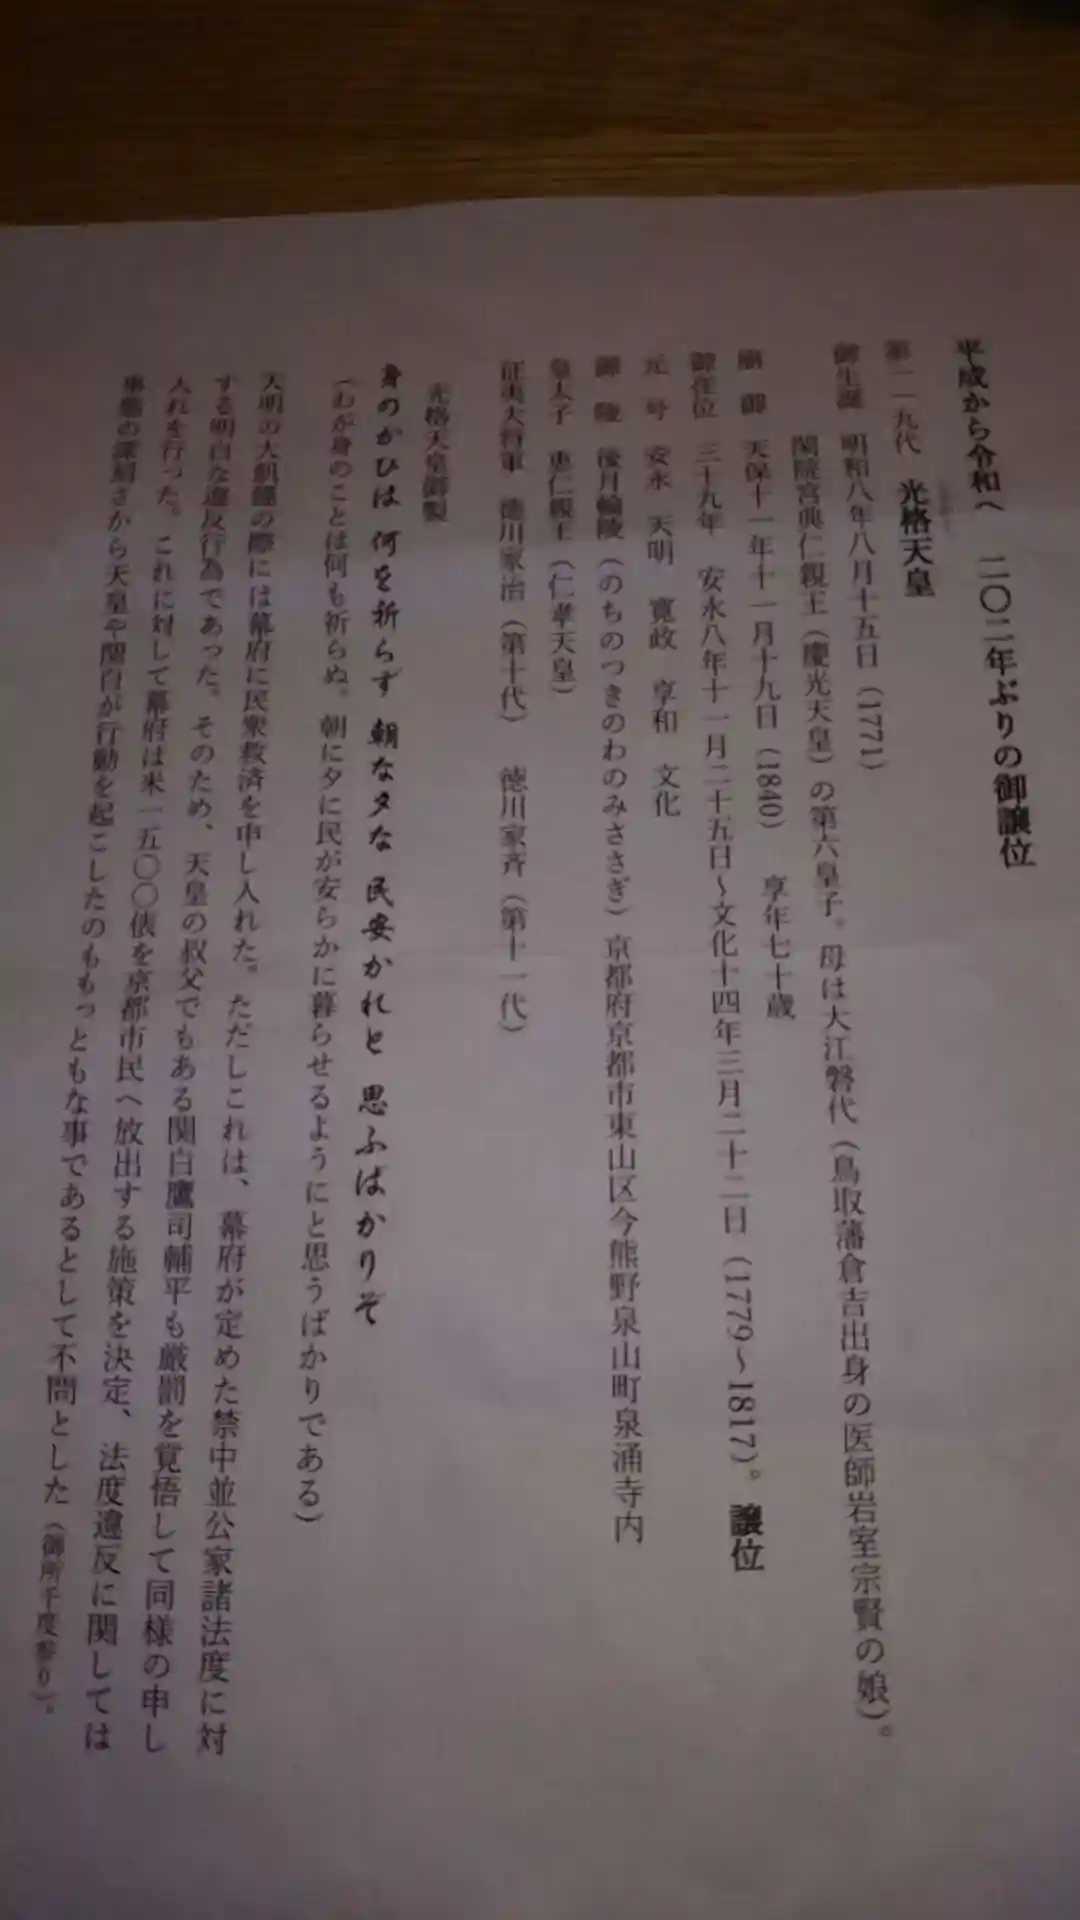 平成から令和へ　二〇二年ぶりの御譲位
第一一九代　光格天皇
御生誕　明和八年八月十五日（1771）
閑院宮典仁親王（慶光天皇）の第六皇子。母は大江磐代（鳥取藩倉吉出身の医師岩室宗賢の娘）。
崩　御　天保十一年十一月十九日（1840）　享年七十歳
御在位　三十九年　安永八年十一月二十五日～文化十四年三月二十二日（1779～1817）。譲位
元　号　安永　天明　寛政　享和　文化
御　陵　後月輪陵（のちのつきのわのみささぎ）京都府京都市東山区今熊野泉山町泉涌寺内
皇太子　恵仁親王（仁孝天皇）
征夷大将軍　徳川家治（第十代）　徳川家斉（第十一代）
光格天皇御製
身のかひは 何を祈らず 朝な夕な 民安かれと 思ふばかりぞ
（わが身のことは何も祈らぬ。朝に夕に民が安らかに暮らせるようにと思うばかりである）
天明の大飢饉の際には幕府に民衆救済を申し入れた。ただしこれは、幕府が定めた禁中並公家諸法度に対
する明白な違反行為であった。そのため、天皇の叔父でもある関白鷹司輔平も厳罰を覚悟して同様の申し
入れを行った。これに対して幕府は米一五〇〇俵を京都市民へ放出する施策を決定、法度違反に関しては
事態の深刻さから天皇や関白が行動を起こしたのももっともな事であるとして不問とした（御所千度参り）。